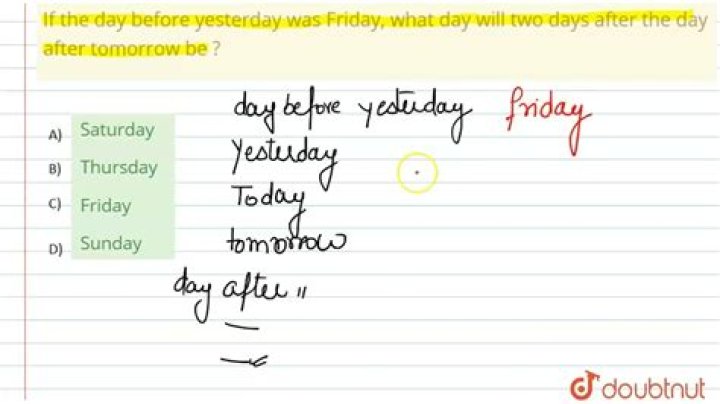 If the day before yesterday was Friday, what day will two days after the day
after tomorrow be ?
day before yesterday friday
A) Saturday
Yesterday
B) Thursday
Today
C) Friday
tomorrow
D) Sunday
day after "
doubtnut